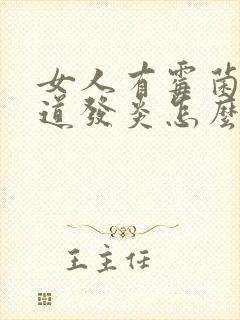 女人有霉菌
道發炎怎麼
王主任